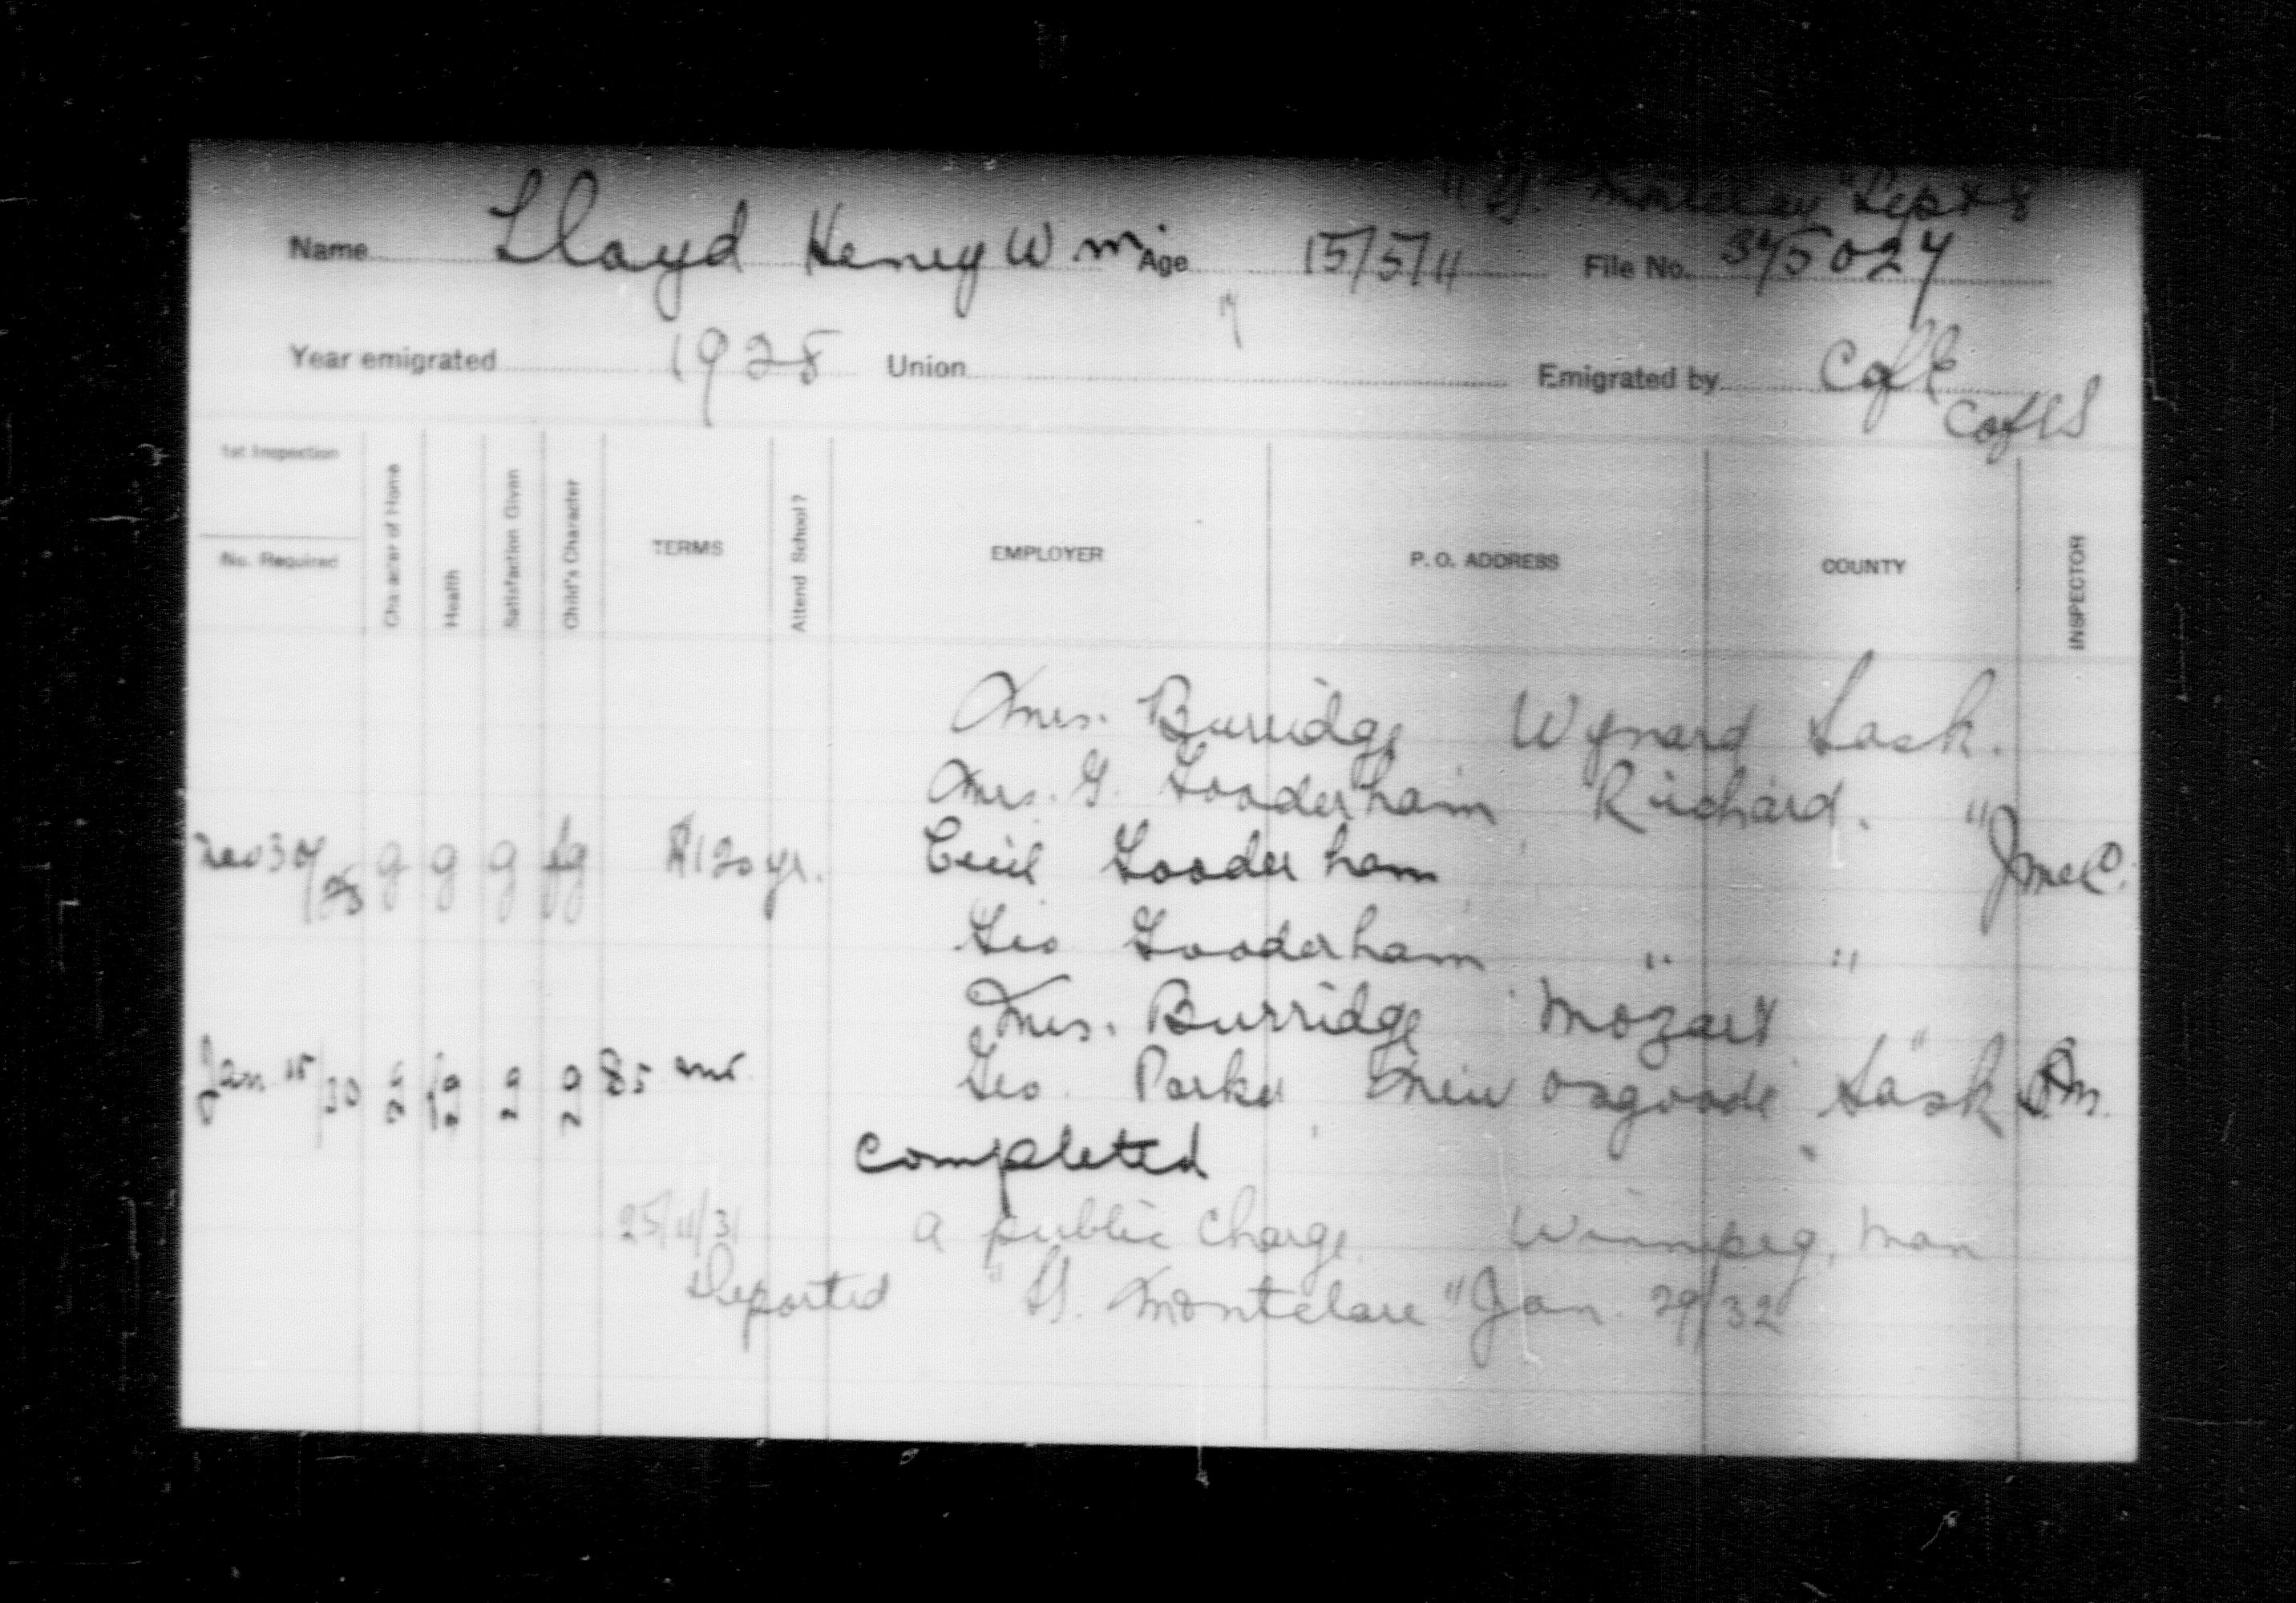 Sept 8
Name Lloyd Henry Wm Age 15/5/11 File No. 5027
17
Year emigrated 1928 Union Emigrated by C of E
C of E S
1st Inspection
No. Required
Character of Home
Health
Satisfaction Given
Child's Character
TERMS
Attend School?
EMPLOYER
P. O. ADDRESS
COUNTY
INSPECTOR
Mrs. Burridge Wynard Sask.
Mrs. G. Gooderham Richard. "
g g g fg $120 yr. Cecil Gooderham
Geo Gooderham " "
Mrs. Burridge Mozart "
Jan 15/30 Geo. Parker New Osgoode Sask
completed
25/11/31 a public charge Winnipeg, Man
Deported "SS. Montclare" Jan. 29/32